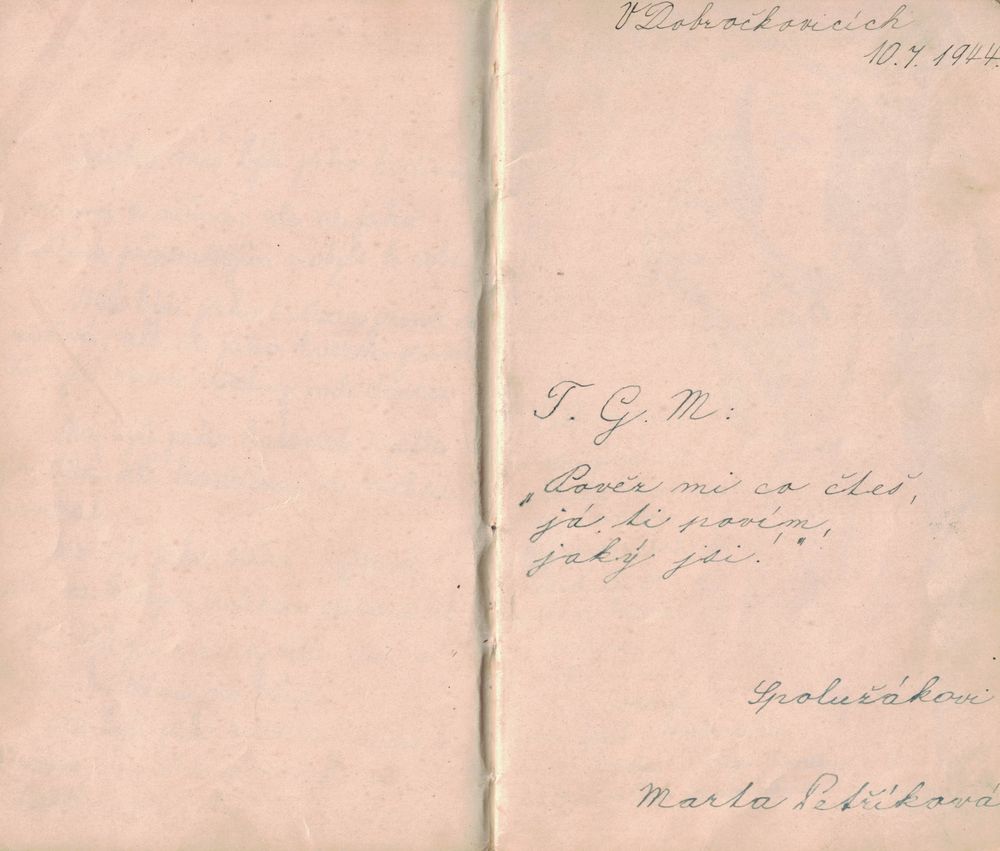 V Dobročkovicích
10.7.1944.
T. G. M:
„Pověz mi co čteš,
já ti povím,
jaký jsi!"
Spolužákovi
Marta Petříková